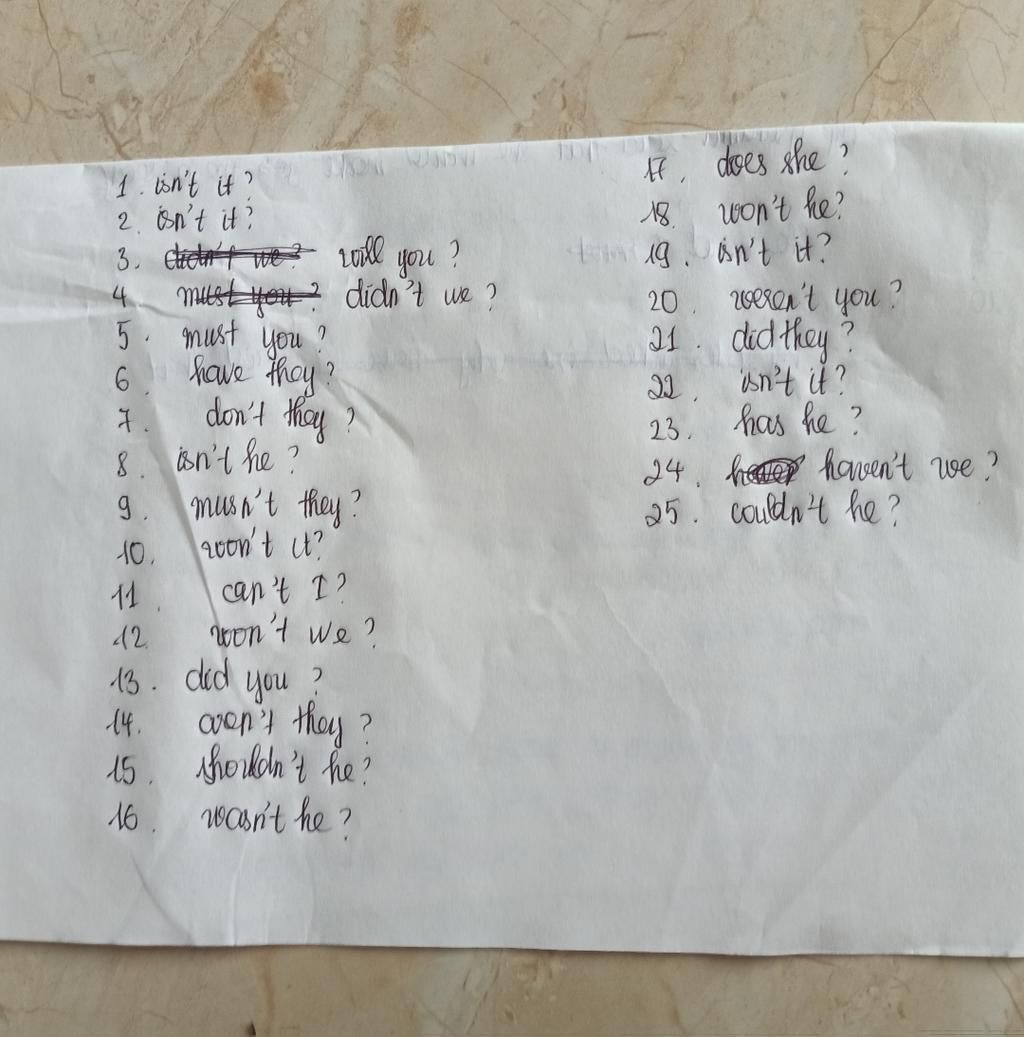 1. isn't it?
2. isn't it?
3. didn't we? will you?
4 must you? didn't we?
5. must you?
6 have they?
7. don't they?
8. isn't he?
9. musn't they?
10. won't it?
11. can't I?
12. won't we?
13. did you?
14. aren't they?
15. shouldn't he?
16. wasn't he?
17. does she?
18. won't he?
19. isn't it?
20. weren't you?
21. did they?
22. isn't it?
23. has he?
24. haven't we?
25. couldn't he?